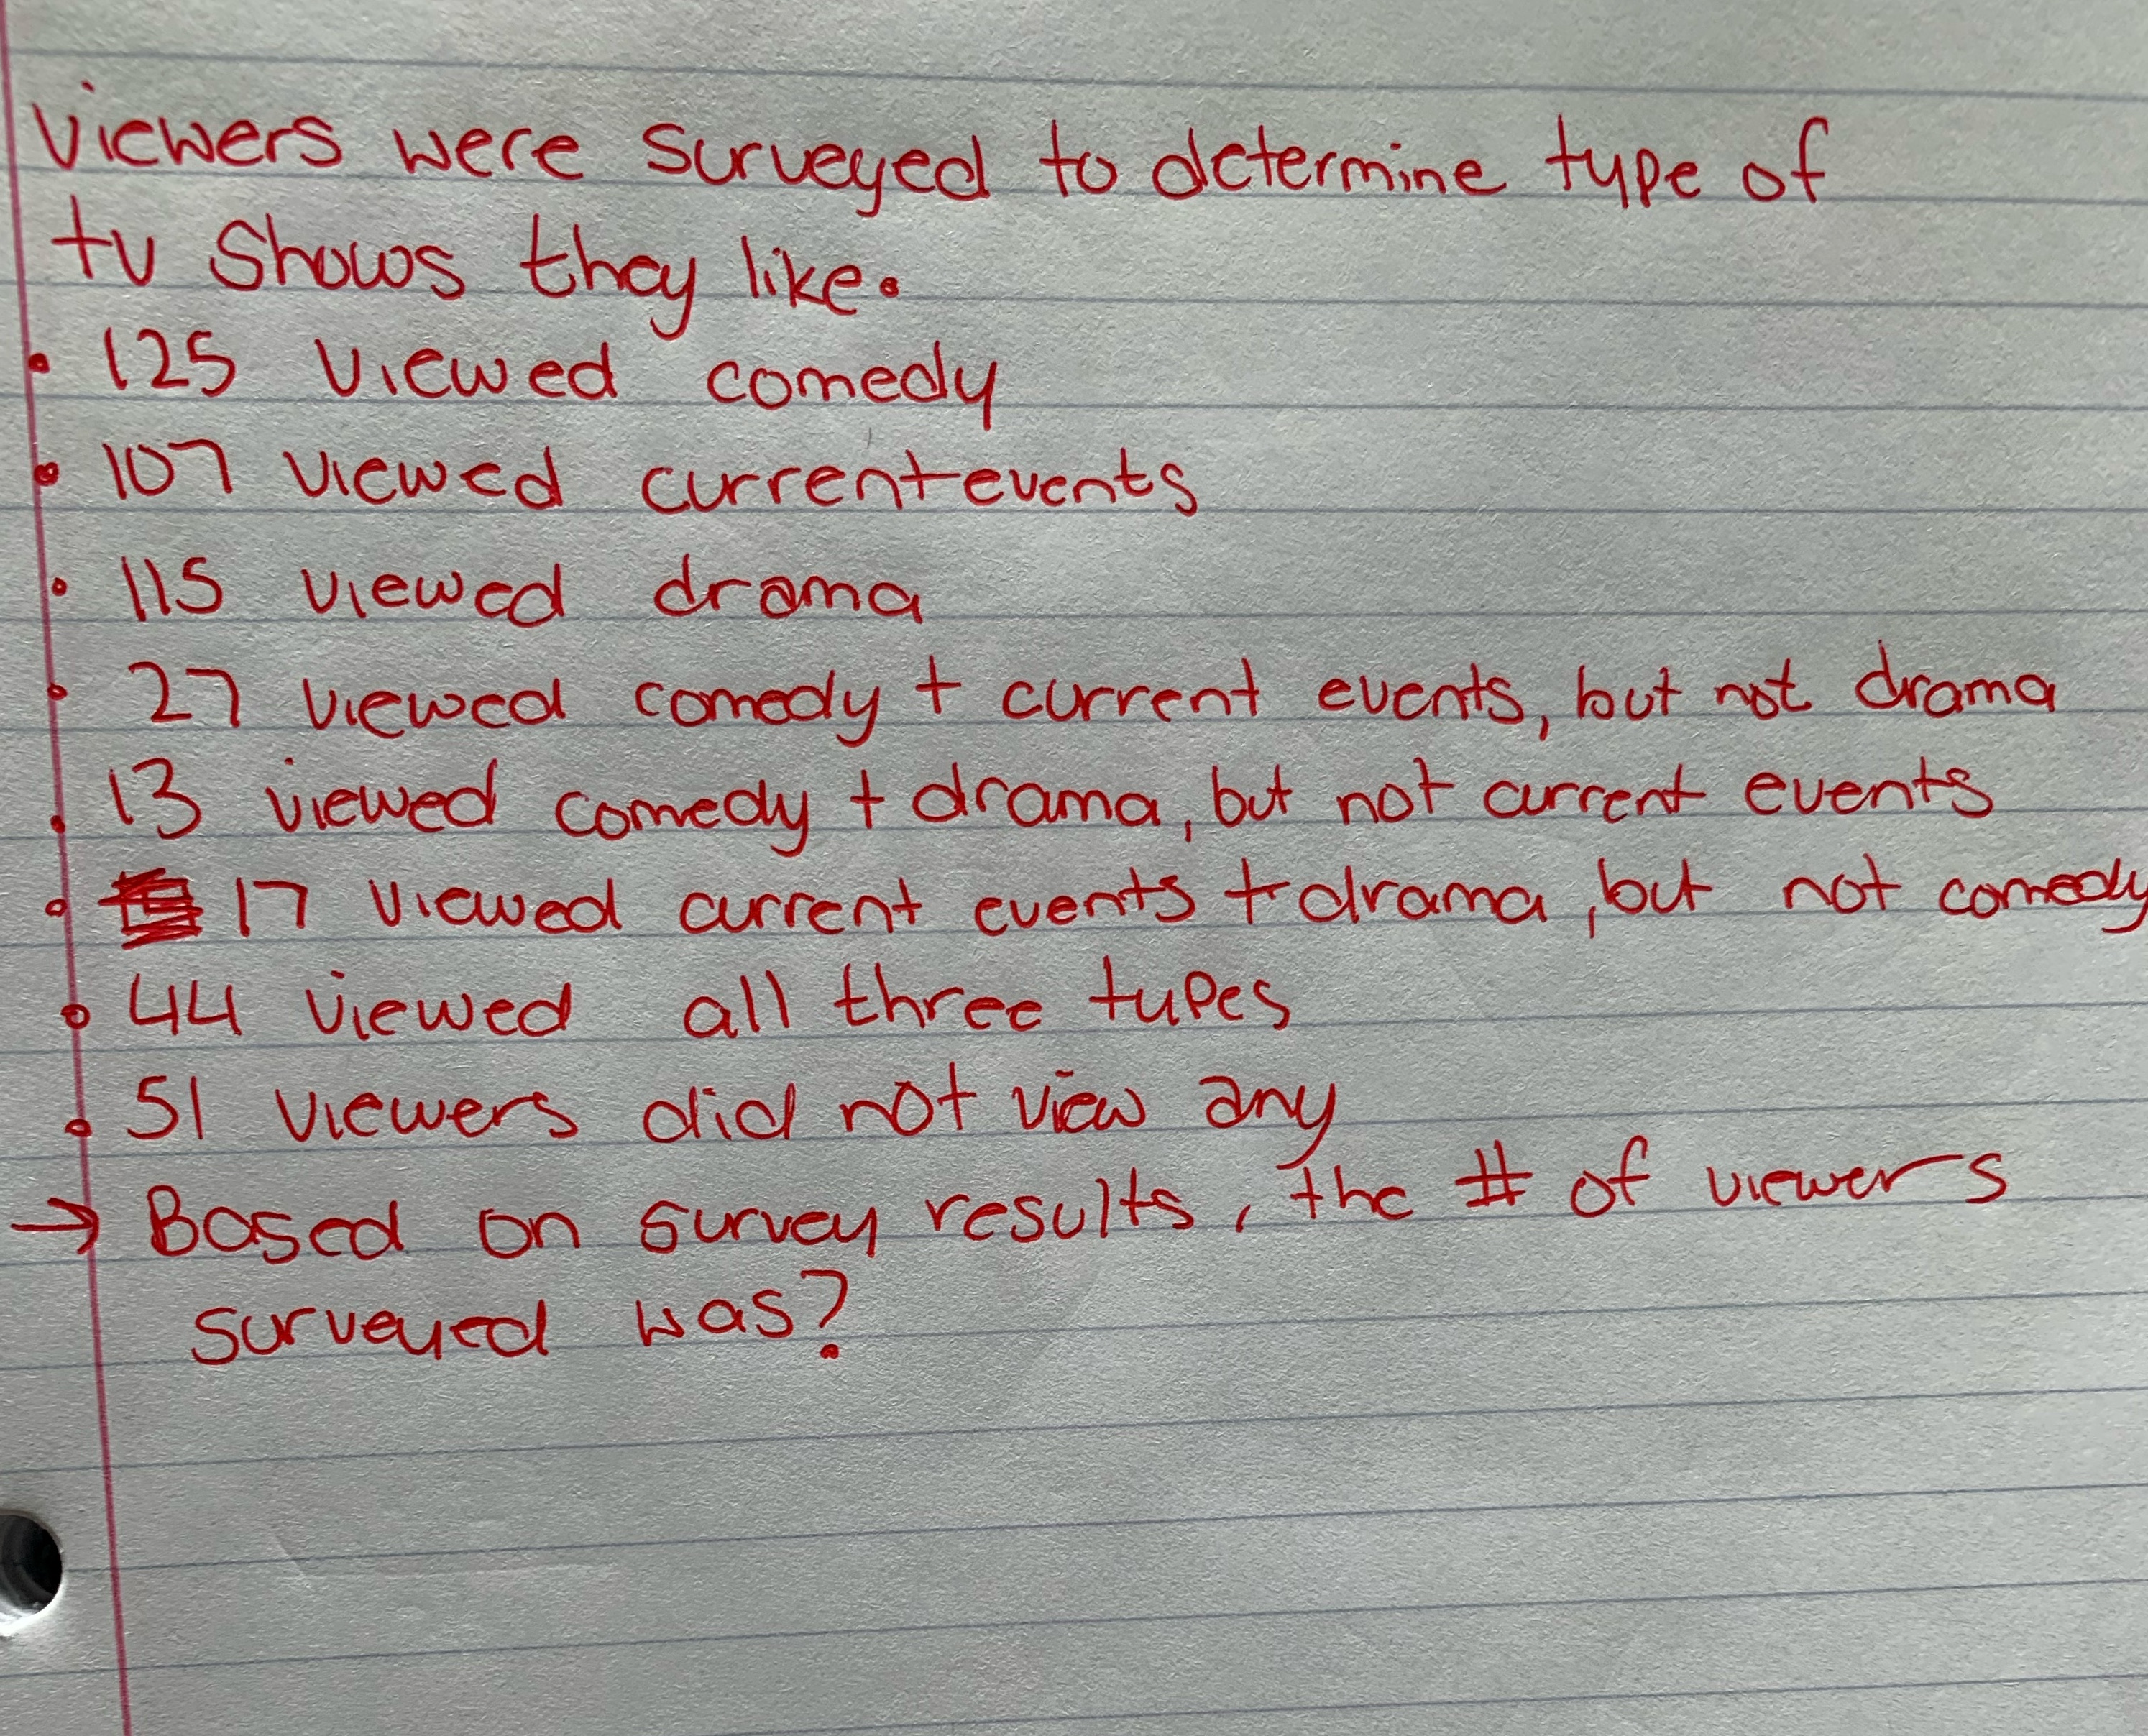 Viewers were surveyed to determine type of
tv shows they like.
• 125 viewed comedy
• 107 viewed current events
• 115 viewed drama
• 27 viewed comedy + current events, but not drama
• 13 viewed comedy + drama, but not current events
• 17 viewed current events + drama, but not comedy
• 44 viewed all three types
• 51 viewers did not view any
→ Based on survey results, the # of viewers
surveyed was?